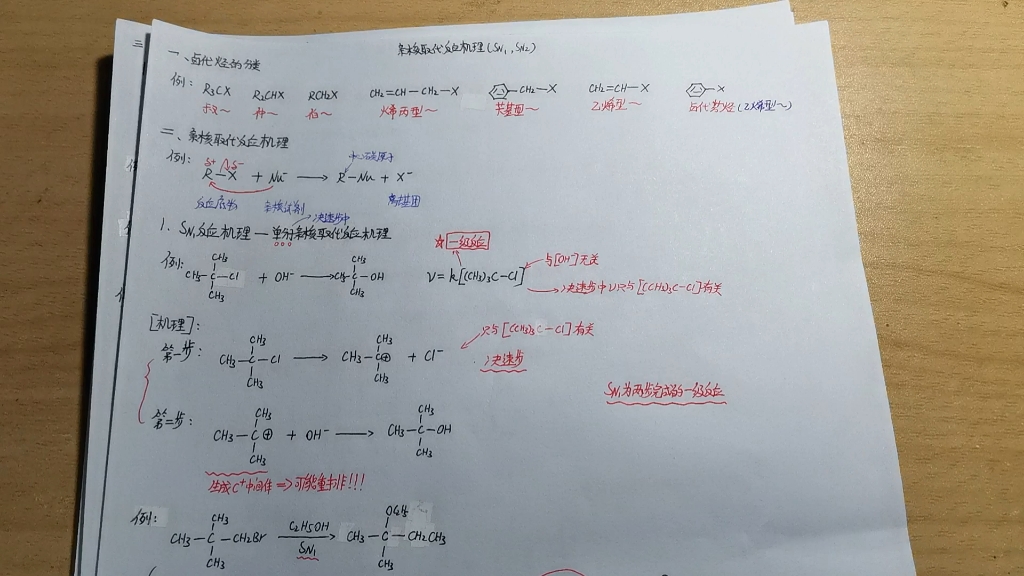 亲核取代反应机理(SN1,SN2)
一、卤代烃的分类
例: R3CX R2CHX RCH2X CH2=CH-CH2-X -CH2-X CH2=CH-X -X
叔~ 仲~ 伯~ 烯丙型~ 苄基型~ 乙烯型~ 卤代芳烃(乙烯型~)
二、亲核取代反应机理
中心碳原子
例: δ+ δ-
R-X + Nu- → R-Nu + X-
反应底物 亲核试剂 离去基团
决速步中
1. SN1反应机理—单分子亲核取代反应机理
☆ 一级反应
例: CH3-C(CH3)(CH3)-Cl + OH- → CH3-C(CH3)(CH3)-OH v=k[(CH3)3C-Cl]
与[OH-]无关
决速步中v只与[(CH3)3C-Cl]有关
[机理]:
只与[(CH3)3C-Cl]有关
第一步: CH3-C(CH3)(CH3)-Cl → CH3-C⊕(CH3)(CH3) + Cl-
决速步
SN1为两步完成的一级反应
第二步: CH3-C⊕(CH3)(CH3) + OH- → CH3-C(CH3)(CH3)-OH
生成C+中间体 => 可能重排!!!
例: CH3-C(CH3)(CH3)-CH2Br C2H5OH → SN1 CH3-C(CH3)-CH2CH3